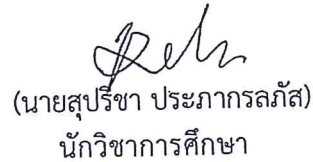 (นายสุปรีชา ประภากรลภัส)
นักวิชาการศึกษา